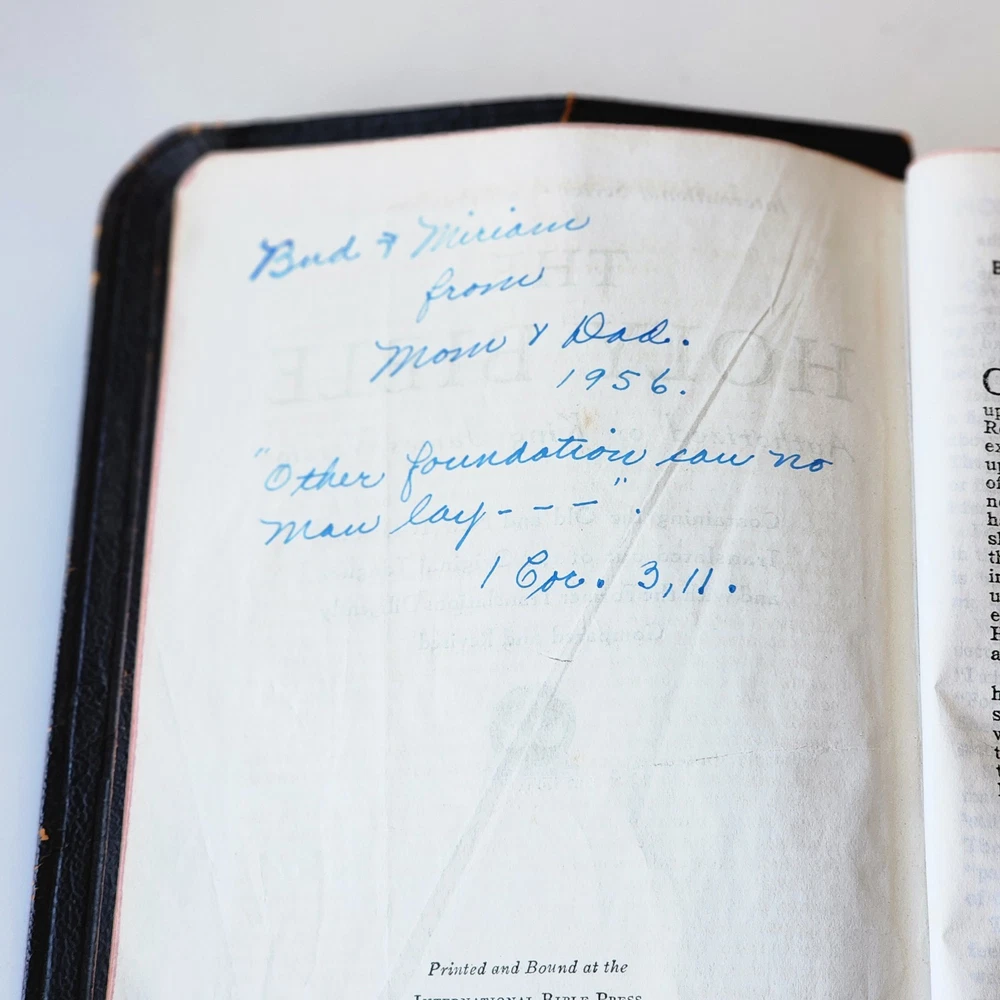 Bud & Miriam
from
Mom & Dad.
1956.
"Other foundation can no
man lay - - -".
1 Cor. 3,11.
Printed and Bound at the
INTERNATIONAL BIBLE PRESS